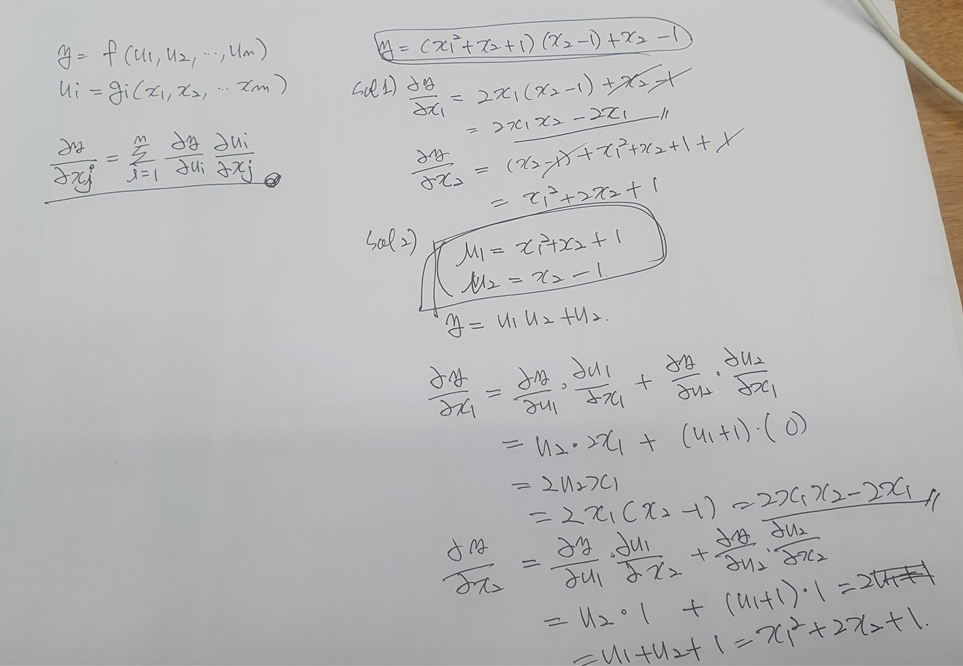 y = f(u₁, u₂, ..., uₘ)
uᵢ = gᵢ(x₁, x₂, ... xₘ)
∂y/∂xⱼ = Σᵢ₌₁ⁿ ∂y/∂uᵢ ∂uᵢ/∂xⱼ
y = (x₁² + x₂ + 1)(x₂ - 1) + x₂ - 1
Sol 1) ∂y/∂x₁ = 2x₁(x₂ - 1) + x₂ - 1
= 2x₁x₂ - 2x₁
∂y/∂x₂ = (x₂ - 1) + x₁² + x₂ + 1 + 1
= x₁² + 2x₂ + 1
Sol 2)
u₁ = x₁² + x₂ + 1
u₂ = x₂ - 1.
y = u₁u₂ + u₂.
∂y/∂x₁ = ∂y/∂u₁ · ∂u₁/∂x₁ + ∂y/∂u₂ · ∂u₂/∂x₁
= u₂ · 2x₁ + (u₁ + 1) · (0)
= 2u₂x₁
= 2x₁(x₂ - 1) = 2x₁x₂ - 2x₁
∂y/∂x₂ = ∂y/∂u₁ · ∂u₁/∂x₂ + ∂y/∂u₂ · ∂u₂/∂x₂
= u₂ · 1 + (u₁ + 1) · 1 = 2
= u₁ + u₂ + 1 = x₁² + 2x₂ + 1.